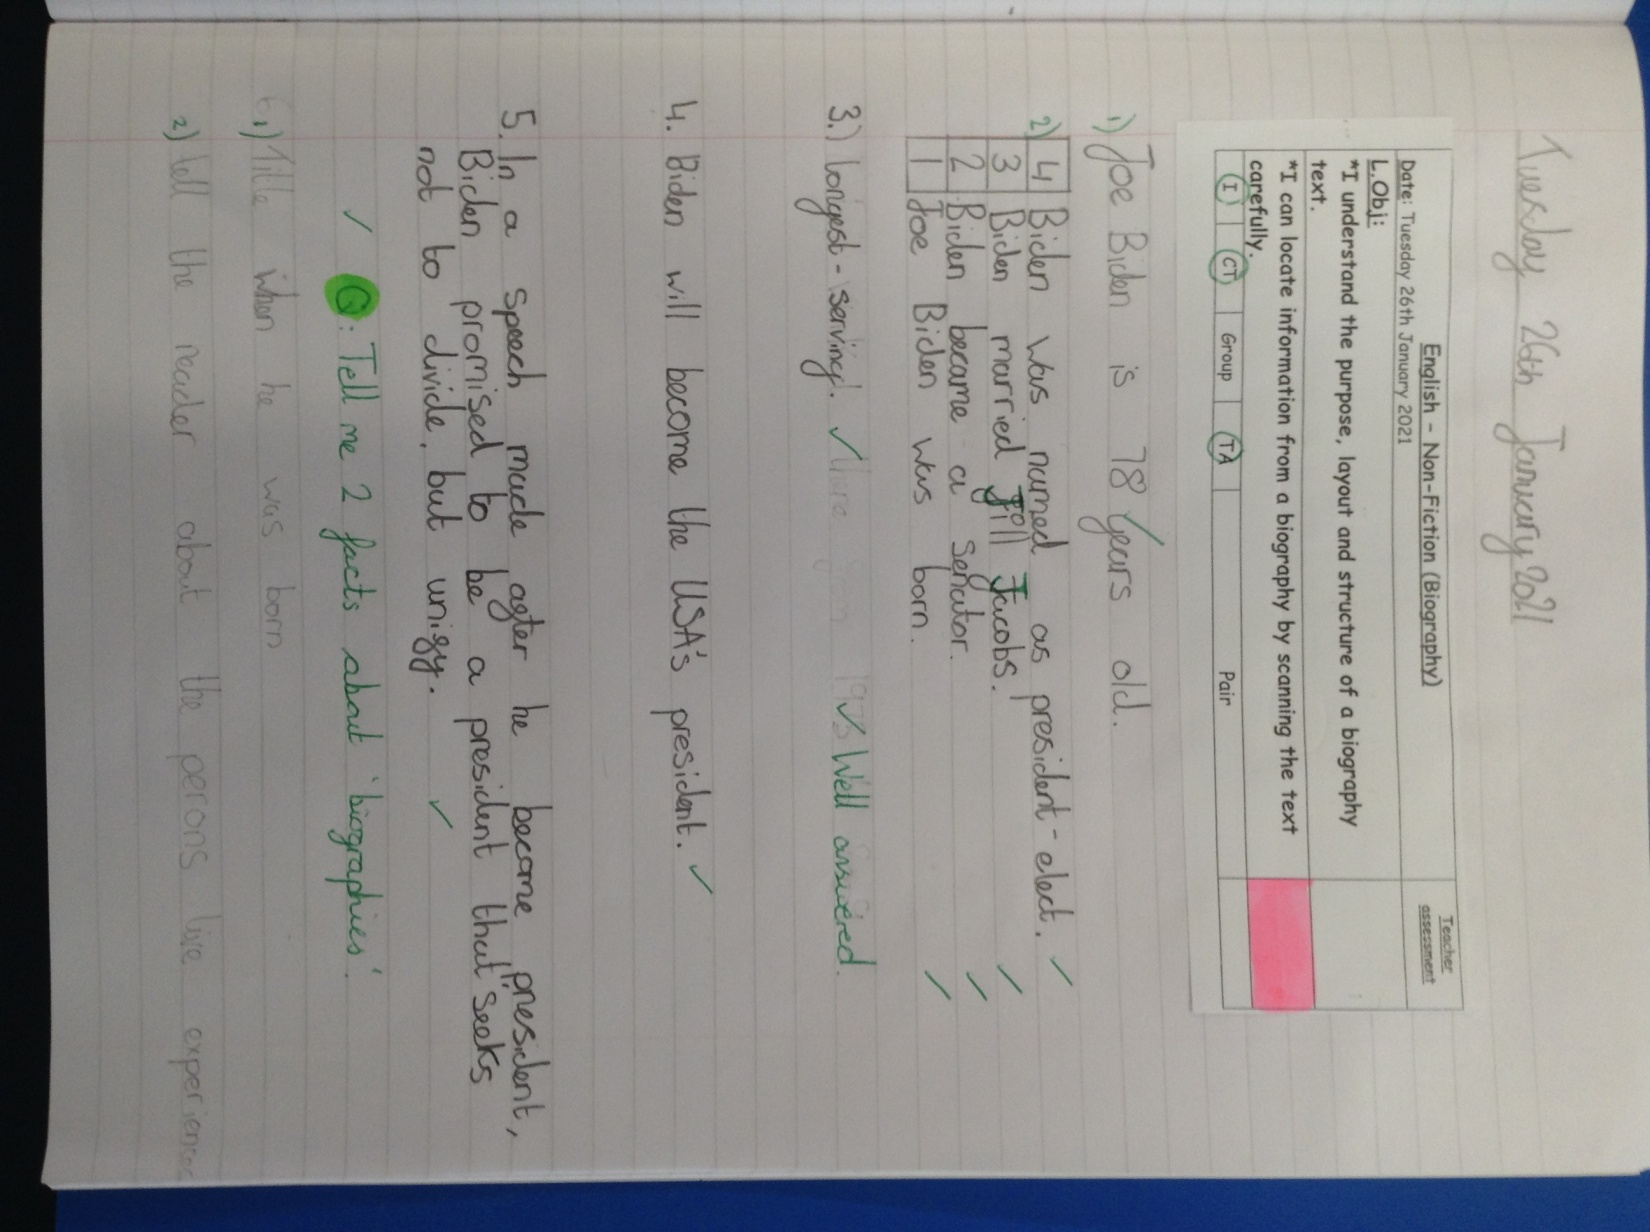 Tuesday 26th January 2021
English - Non-Fiction (Biography)
Teacher assessment
Date: Tuesday 26th January 2021
L.Obj:
*I understand the purpose, layout and structure of a biography
text.
*I can locate information from a biography by scanning the text
carefully.
I CT Group TA Pair
1) Joe Biden is 78 years old.
2) 4 Biden was named as president-elect.
3 Biden married Jill Jacobs.
2 Biden became a senator.
1 Joe Biden was born.
3.) longest-serving. Well answered.
4. Biden will become the USA's president.
5. In a speech made after he become president,
Biden promised to be a president that "seeks
not to divide, but unify.
Q: Tell me 2 facts about 'biographies'.
6.1) Title when he was born
2) tell the reader about the perons live experiences